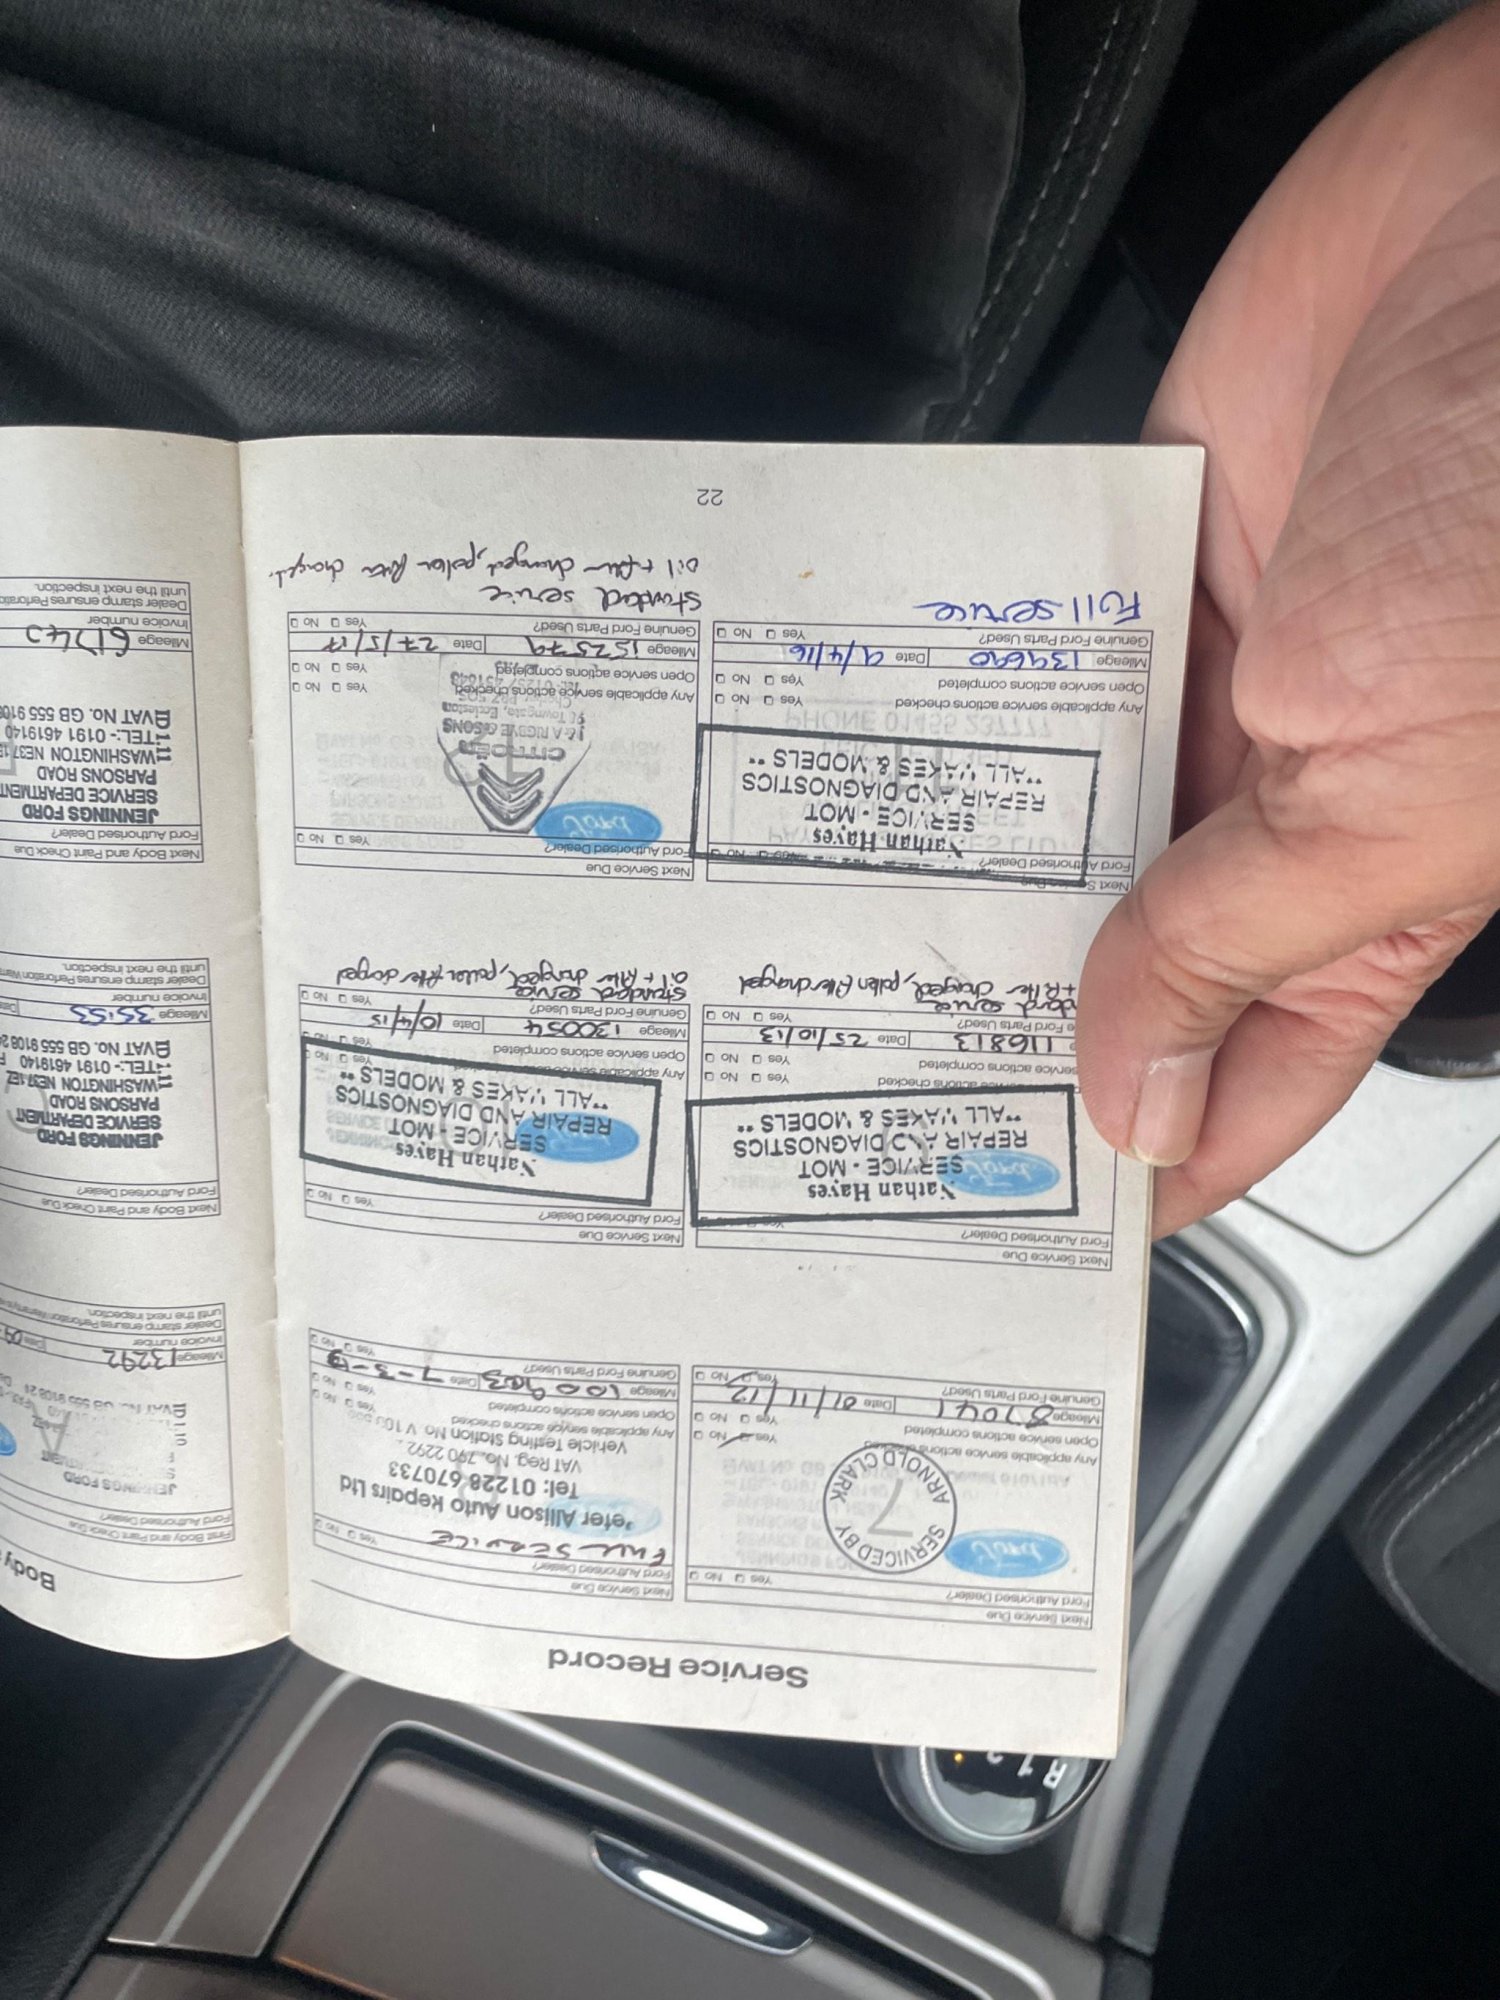 Service Record
Next Service Due
Ford Authorised Dealer? Yes No
SERVICED BY
ARNOLD CLARK
7
Ford
Any applicable service actions checked Yes No
Open service actions completed Yes No
Mileage 87041 Date 01/11/12
Genuine Ford Parts Used? Yes No
Next Service Due
Ford Authorised Dealer? Yes No
FULL SERVICE
Peter Allison Auto Repairs Ltd
Tel: 01228 670733
VAT Reg. No. 790 2292
Vehicle Testing Station No. V100
Any applicable service actions checked Yes No
Open service actions completed Yes No
Mileage 100903 Date 7-3-13
Genuine Ford Parts Used? Yes No
Next Service Due
Ford Authorised Dealer? Yes
Ford
Nathan Hayes
SERVICE - MOT
REPAIR AND DIAGNOSTICS
**ALL MAKES & MODELS **
service actions checked Yes No
service actions completed Yes No
116813 Date 25/10/13
Ford Parts Used? Yes No
service
+ filter changed, pollen filter changed
Next Service Due
Ford Authorised Dealer? Yes No
Ford
Nathan Hayes
SERVICE - MOT
REPAIR AND DIAGNOSTICS
**ALL MAKES & MODELS **
Any applicable
Open service actions completed Yes No
Mileage 130054 Date 10/4/15
Genuine Ford Parts Used? Yes No
standard service
oil + filter changed, pollen filter changed
Next Service Due
Ford Authorised Dealer? Yes No
Nathan Hayes
SERVICE - MOT
REPAIR AND DIAGNOSTICS
**ALL MAKES & MODELS **
PHONE 01455 237777
Any applicable service actions checked Yes No
Open service actions completed Yes No
Mileage 139690 Date 9/4/16
Genuine Ford Parts Used? Yes No
Full service
Next Service Due
Ford Authorised Dealer? Yes No
Ford
CITROËN
J & A RIGBYE & SONS
Towngate, Eccleston
Any applicable service actions checked Yes No
Open service actions completed Yes No
Mileage 152579 Date 27/5/17
Genuine Ford Parts Used? Yes No
Standard service
oil + filter changed, pollen filter changed.
22
Body
First Body and Paint Check Due
Ford Authorised Dealer?
JENNINGS FORD
Mileage 13292 Date 09
Invoice number
Dealer stamp ensures Perforation Warranty
until the next inspection.
Next Body and Paint Check Due
Ford Authorised Dealer?
JENNINGS FORD
SERVICE DEPARTMENT
PARSONS ROAD
WASHINGTON NE37 1EZ
TEL:- 0191 4619140
VAT No. GB 555 9108
Mileage 35153 Date
Invoice number
Dealer stamp ensures Perforation Warr
until the next inspection.
Next Body and Paint Check Due
Ford Authorised Dealer?
JENNINGS FORD
SERVICE DEPARTMENT
PARSONS ROAD
WASHINGTON NE37 1
TEL:- 0191 4619140
VAT No. GB 555 9108
Mileage 61740
Invoice number
Dealer stamp ensures Perforation
until the next inspection.
R 1 2